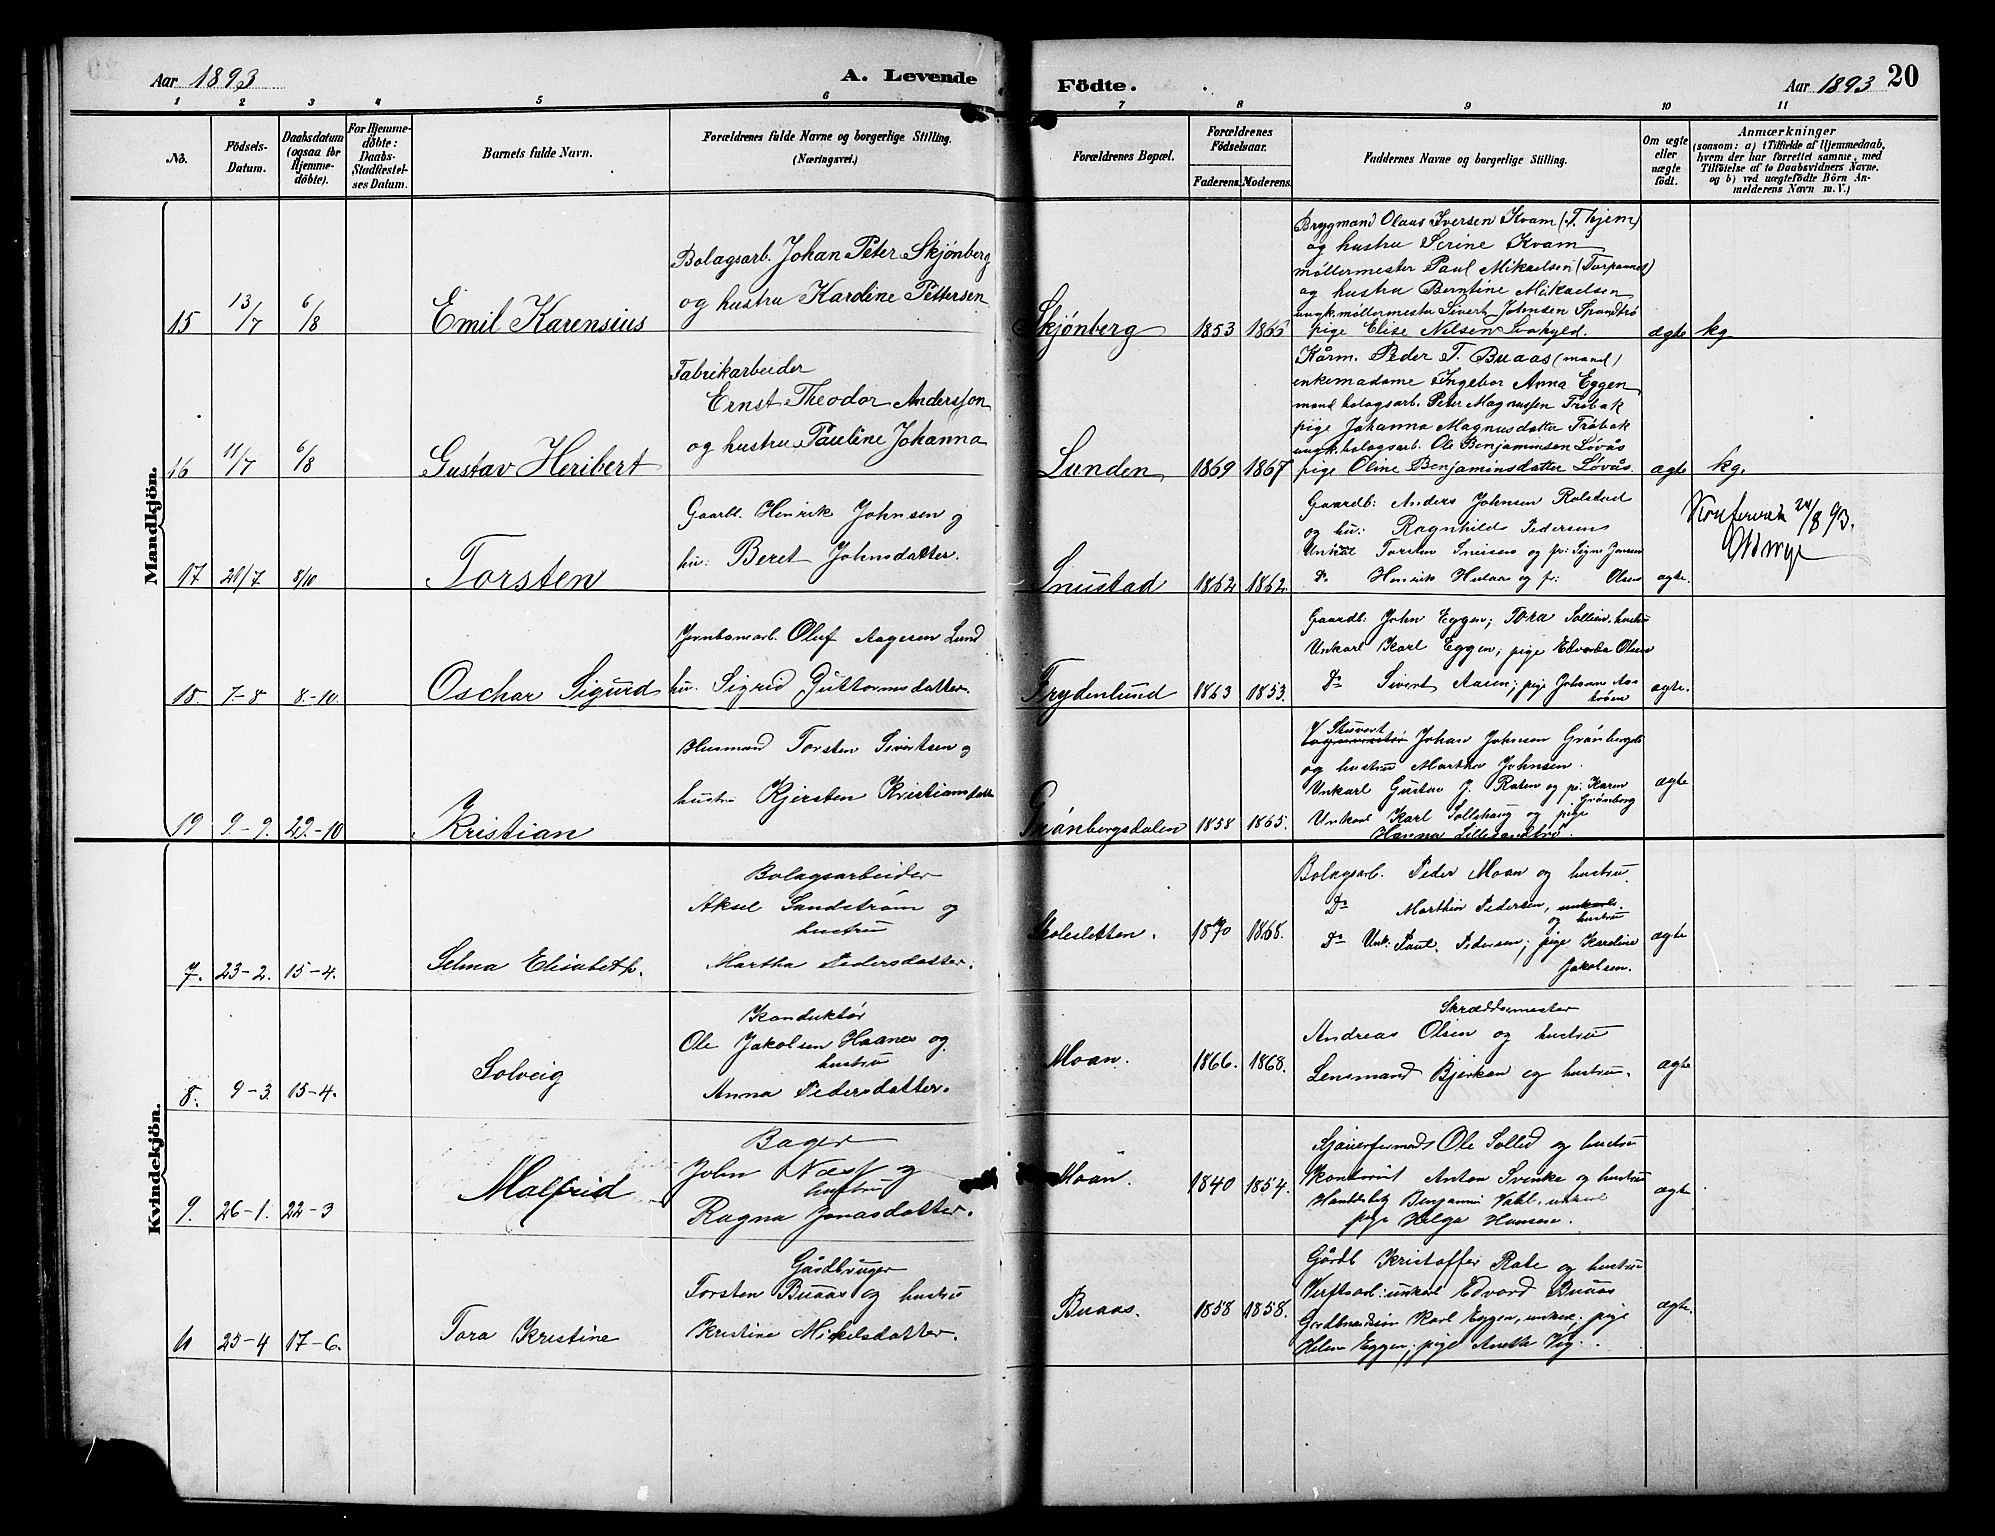 Aar 1893
A. Levende
Födte.
Aar 1893
20
1 2 3 4 5 6 7 8 9 10 11
No.
Födsels-
Datum.
Daabsdatum
(ogsaa for
Hjemme-
döbte).
For Hjemme-
döbte:
Daabs-
Stadfæstel-
ses Datum.
Barnets fulde Navn.
Forældrenes fulde Navne og borgerlige Stilling.
(Næringsvei.)
Forældrenes Bopæl.
Forældrenes
Födselsaar.
Faderens.
Moderens.
Faddernes Navne og borgerlige Stilling.
Om ægte
eller
uægte
födt.
Anmærkninger
(saasom: a) i Tilfælde af Hjemmedaab,
hvem der har forrettet samme, med
Tilföielse af to Daabsvidners Navne.
og b) ved uægtefödte Börn An-
melderens Navn m. V.)
Mandkjön.
15
13/7
6/8
Emil Karensius
Bolagsarb. Johan Peter Skjønberg
og hustru Kardine Pettersen
Skjønberg
1853
1865
Brygmand Olaus Iversen Kvam (T.hjem)
og hustru Serine Kvam
møllermester Paul Mikaelsen
og hustru Berntine Mikaelsen
ungk. møllermester Sivert Johnsen
pige Elise Nilsen
ægte
kg
16
11/7
6/8
Gustav Heribert
Fabrikarbeider
Ernst Theodor Andersson
og hustru Pauline Johanna
Lunden
1869
1867
Kårm. Peder T. Buaas (mand)
enkemadame Ingebor Anna Eggen
mand bolagsarb. Peter Magnussen Trøbak
pige Johanna Magnusdatter Trøbak
ungk. bolagsarb. Ole Benjaminsen Løvås
pige Oline Benjaminsdatter Løvås.
ægte
kg.
17
20/7
8/10
Torsten
Gaarb. Henrik Johnsen og
hu: Beret Johnsdatter.
Snustad
1862
1862.
Gaardb: Anders Johnsen Rolstad
og hu: Ragnhild Pedersen
Unkal Torsten og pi: Signe Jensen
Do Henrik og pi: Olsen
ægte.
24/8 93.
18.
7-8
8.-10.
Oschar Sigurd
Jernbanearb. Oluf Aagesen Lund
hu. Sigrid Guttormsdatter.
Frydenlund
1863
1853.
Gaardb: John Eggen; Tora Sollien, hustru
Unkarl Karl Eggen; pige Edvarda Olsen
Do Sivert Aasen; pige Johanne
ægte.
19
9-9.
29.-10
Kristian
Husmand Torsten Sivertsen og
hustru Kjersten Kristiansdatter
Grønbergsdalen
1858
1865.
Johan Johnsen Grønbergsd.
og hustru Martha Johnsen.
Unkarl Gustav J. Raten og pi: Karen
Grønberg
Unkarl Karl Sollihaug og pige
Hanna
ægte
Kvindekjön.
7.
23-2.
15-4.
Selma Elisabeth.
Bolagsarbeider
Aksel Sandstrøm og
hustru
Martha Pedersdatter.
Skolesletten.
1870
1868.
Bolagsarb. Peder Moan og hustru.
Do Marthin Pedersen, unkarl.
og hustru
Do Unk: Paul Pedersen; pige Kardine
Jakobsen.
ægte
8.
9-3.
15-4.
Solveig
Konduktør
Ole Jakobsen Haanes og
hustru
Anna Pedersdatter.
Moan.
1866.
1868.
Skræddermester
Andreas Olsen og hustru
Lensmand Bjerkan og hustru.
ægte
9.
26-1.
22-3
Malfrid
Bager
John Næss og
hustru
Ragna Jonasdatter.
Moan.
1840
1854.
Ole Sollid og hustru
Anton Svenke og hustru
Benjamin Vahl, unkarl
pige Helga Hansen.
ægte
11
25-4
17-6.
Tora Kristine
Gårdbruger
Torsten Buaas og hustru
Kristine Mikelsdatter.
Buaas.
1858
1858.
Gårdb Kristoffer Rate og hustru
Verftsarb: unkarl Edvard Buaas
Karl Eggen, unkarl; pige
Helene Eggen; pige Anetta Vig.
ægte.